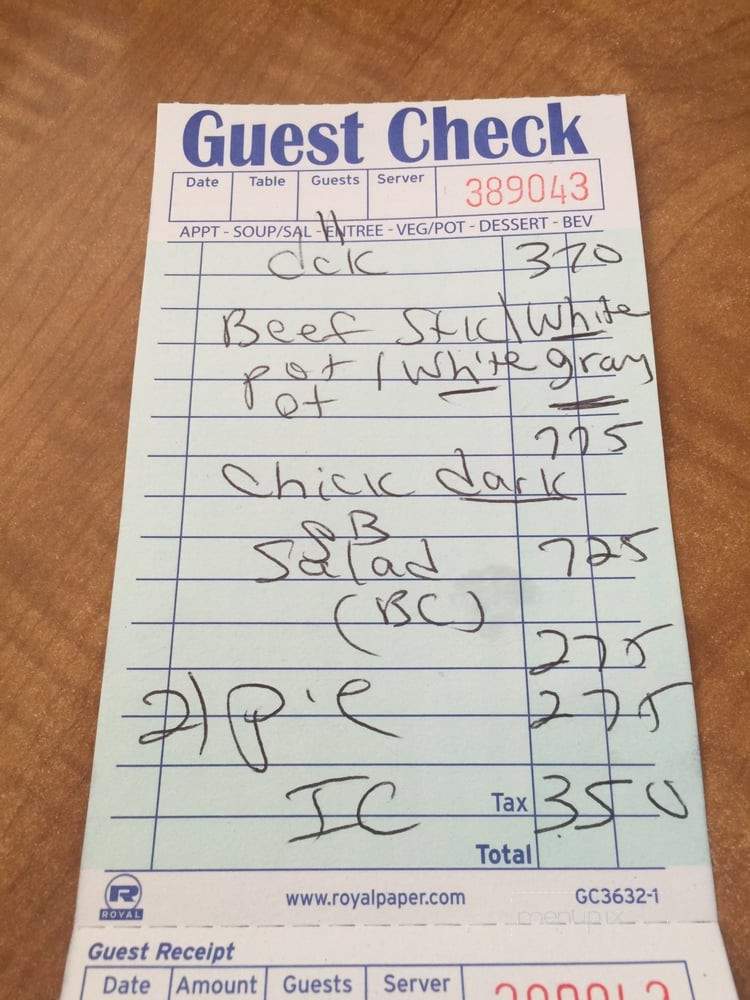 Guest Check
Date Table Guests Server 389043
APPT - SOUP/SAL - ENTREE - VEG/POT - DESSERT - BEV
dck 370
Beef Stk \ White
pot / white gray
ot
775
Chick dark
OB
Salad 725
(BC)
275
2) pie 275
IC Tax 350
Total
R ROYAL www.royalpaper.com GC3632-1
menupix
Guest Receipt
Date Amount Guests Server